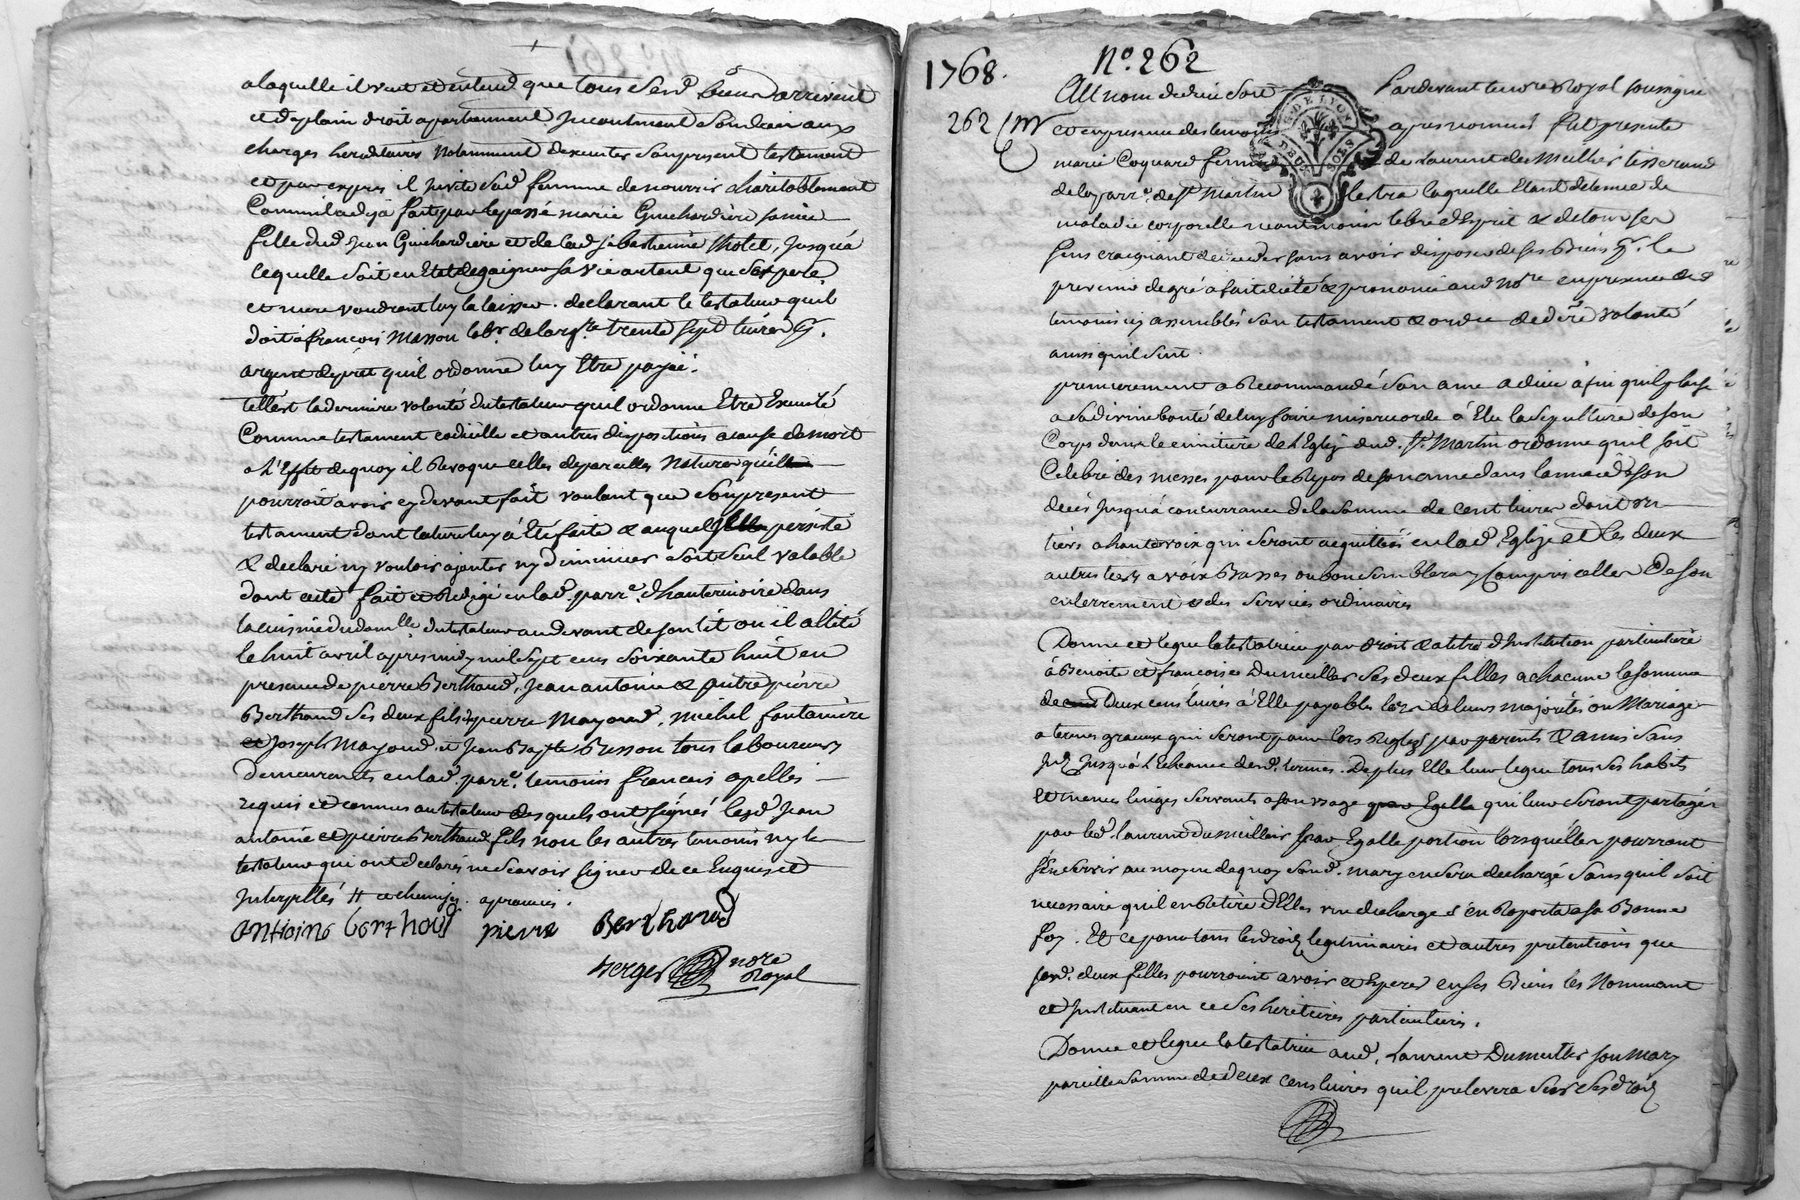 a laquelle il veut et entend que tous sesd. biens arrivent
et de plain droit apartiennent incontinent son deces aux
charges hereditaires notamment d'executer son present testament
et par expres il invite sad. femme de nourrir charitablement
comme il a deja fait par le passé marie Guichardiere
fille dud. Jean Guichardiere et de lad. sebastienne tholet, jusqu'a
ce quelle soit en Etat de gaigner sa vie autant que ses pere
et mere voudront luy la laisser. declarant le testateur quil
doit à francois Masson trente sept livres
argent de pret quil ordonne luy Etre payé.
telle est la derniere volonté du testateur quil ordonne Etre Executé
Comme testament codicille et autres dispositions a cause de mort
a L'Effet de quoy il Revoque celles de pareilles Nature quil
pourroit avoir cy devant fait voulant que son present
testament dont lecture luy à été faite & auquel il persiste
& declare ny vouloir ajouter ny diminuer soit seul valable
dont acte fait et Redigé en lad. parr.e d'hauterivoire dans
la cuisine du dom.lle du testateur au devant de son lit ou il est alité
le huit avril apres midy mil sept cens soixante huit en
presence de pierre Berthaud, Jean antoine & autre pierre
Berthaud ses deux fils, pierre Mayoud, michel fontaniere
et Joseph Mayoud et Jean Bap.te Bresson tous laboureurs
demeurants en lad. parr.e temoins francois apellés
requis et connus au testateur desquels ont signés lesd. Jean
antoine et pierre Berthaud fils non les autres temoins ny le
testateur qui ont declarés ne scavoir signer de ce Enquis et
Interpellés
antoine berthoud pierre Berthaud
Verger no.re Royal
1768. N.o 262
262
Au nom de dieu soit Pardevant le no.re Royal soussigné
et en presence des temoins apres nommés fut presente
marie Coquard femme de Laurent du Meillier tisserand
de la parr.e de S.t Martin lestra laquelle Etant detenue de
maladie corporelle neantmoins libre d'Esprit & de tous ses
sens craignant deceder sans avoir disposer de ses Biens
presens de gré a fait dicté & prononcé aud. No.re en presence des
temoins cy assemblés son testament & ordre de d.re volonté
ainsi quil suit.
premierement a Recommandé son ame a dieu à fin quil plaise
a sa divine bonté de luy faire misericorde à Elu la sepulture de son
Corps dans le cimitiere de l'Eglise dud. S.t Martin ordonne quil soit
Celebré des messes pour le Repos de son ame dans l'année de son
deces jusqu'a concurrance de la somme de cent livres dont un
tiers a haute voix qui seront acquittés en lad. Eglise et les deux
autres tiers a voix Basses ou bon semblera y compris celles de son
enterrement & des services ordinaires
Donne et legue la testatrice par droit & a titre d'Institution particuliere
à Benoite et francoise Dumeillier ses deux filles a chacune la somme
de deux cens livres à Elle payables lors de leurs majorités ou Mariage
a termes graceux qui seront pour lors Reglés par parents & amis sans
Jusqu'à L'Echeance desd. termes. De plus Elle leur legue tous ses habits
et menus linges servants a son usage qui leur seront partagés
par led. laurent Dumeillier par Egalle portion lorsqu'elles pourront
s'en servir au moyen de quoy sond. mary en sera dechargé sans quil soit
necessaire quil en Retire d'Elles une decharge s'en Raporta a sa Bonne
foy. Et ce pour tous les droits legitimaires et autres pretentions que
sesd. deux filles pourroient avoir et Esperer en ses Biens les Nommant
et Instituant en ce ses heritieres particulieres.
Donne et legue la testatrice aud. Laurent Dumeillier son Mary
pareille somme de deux cens livres quil prelevera sur ses droits